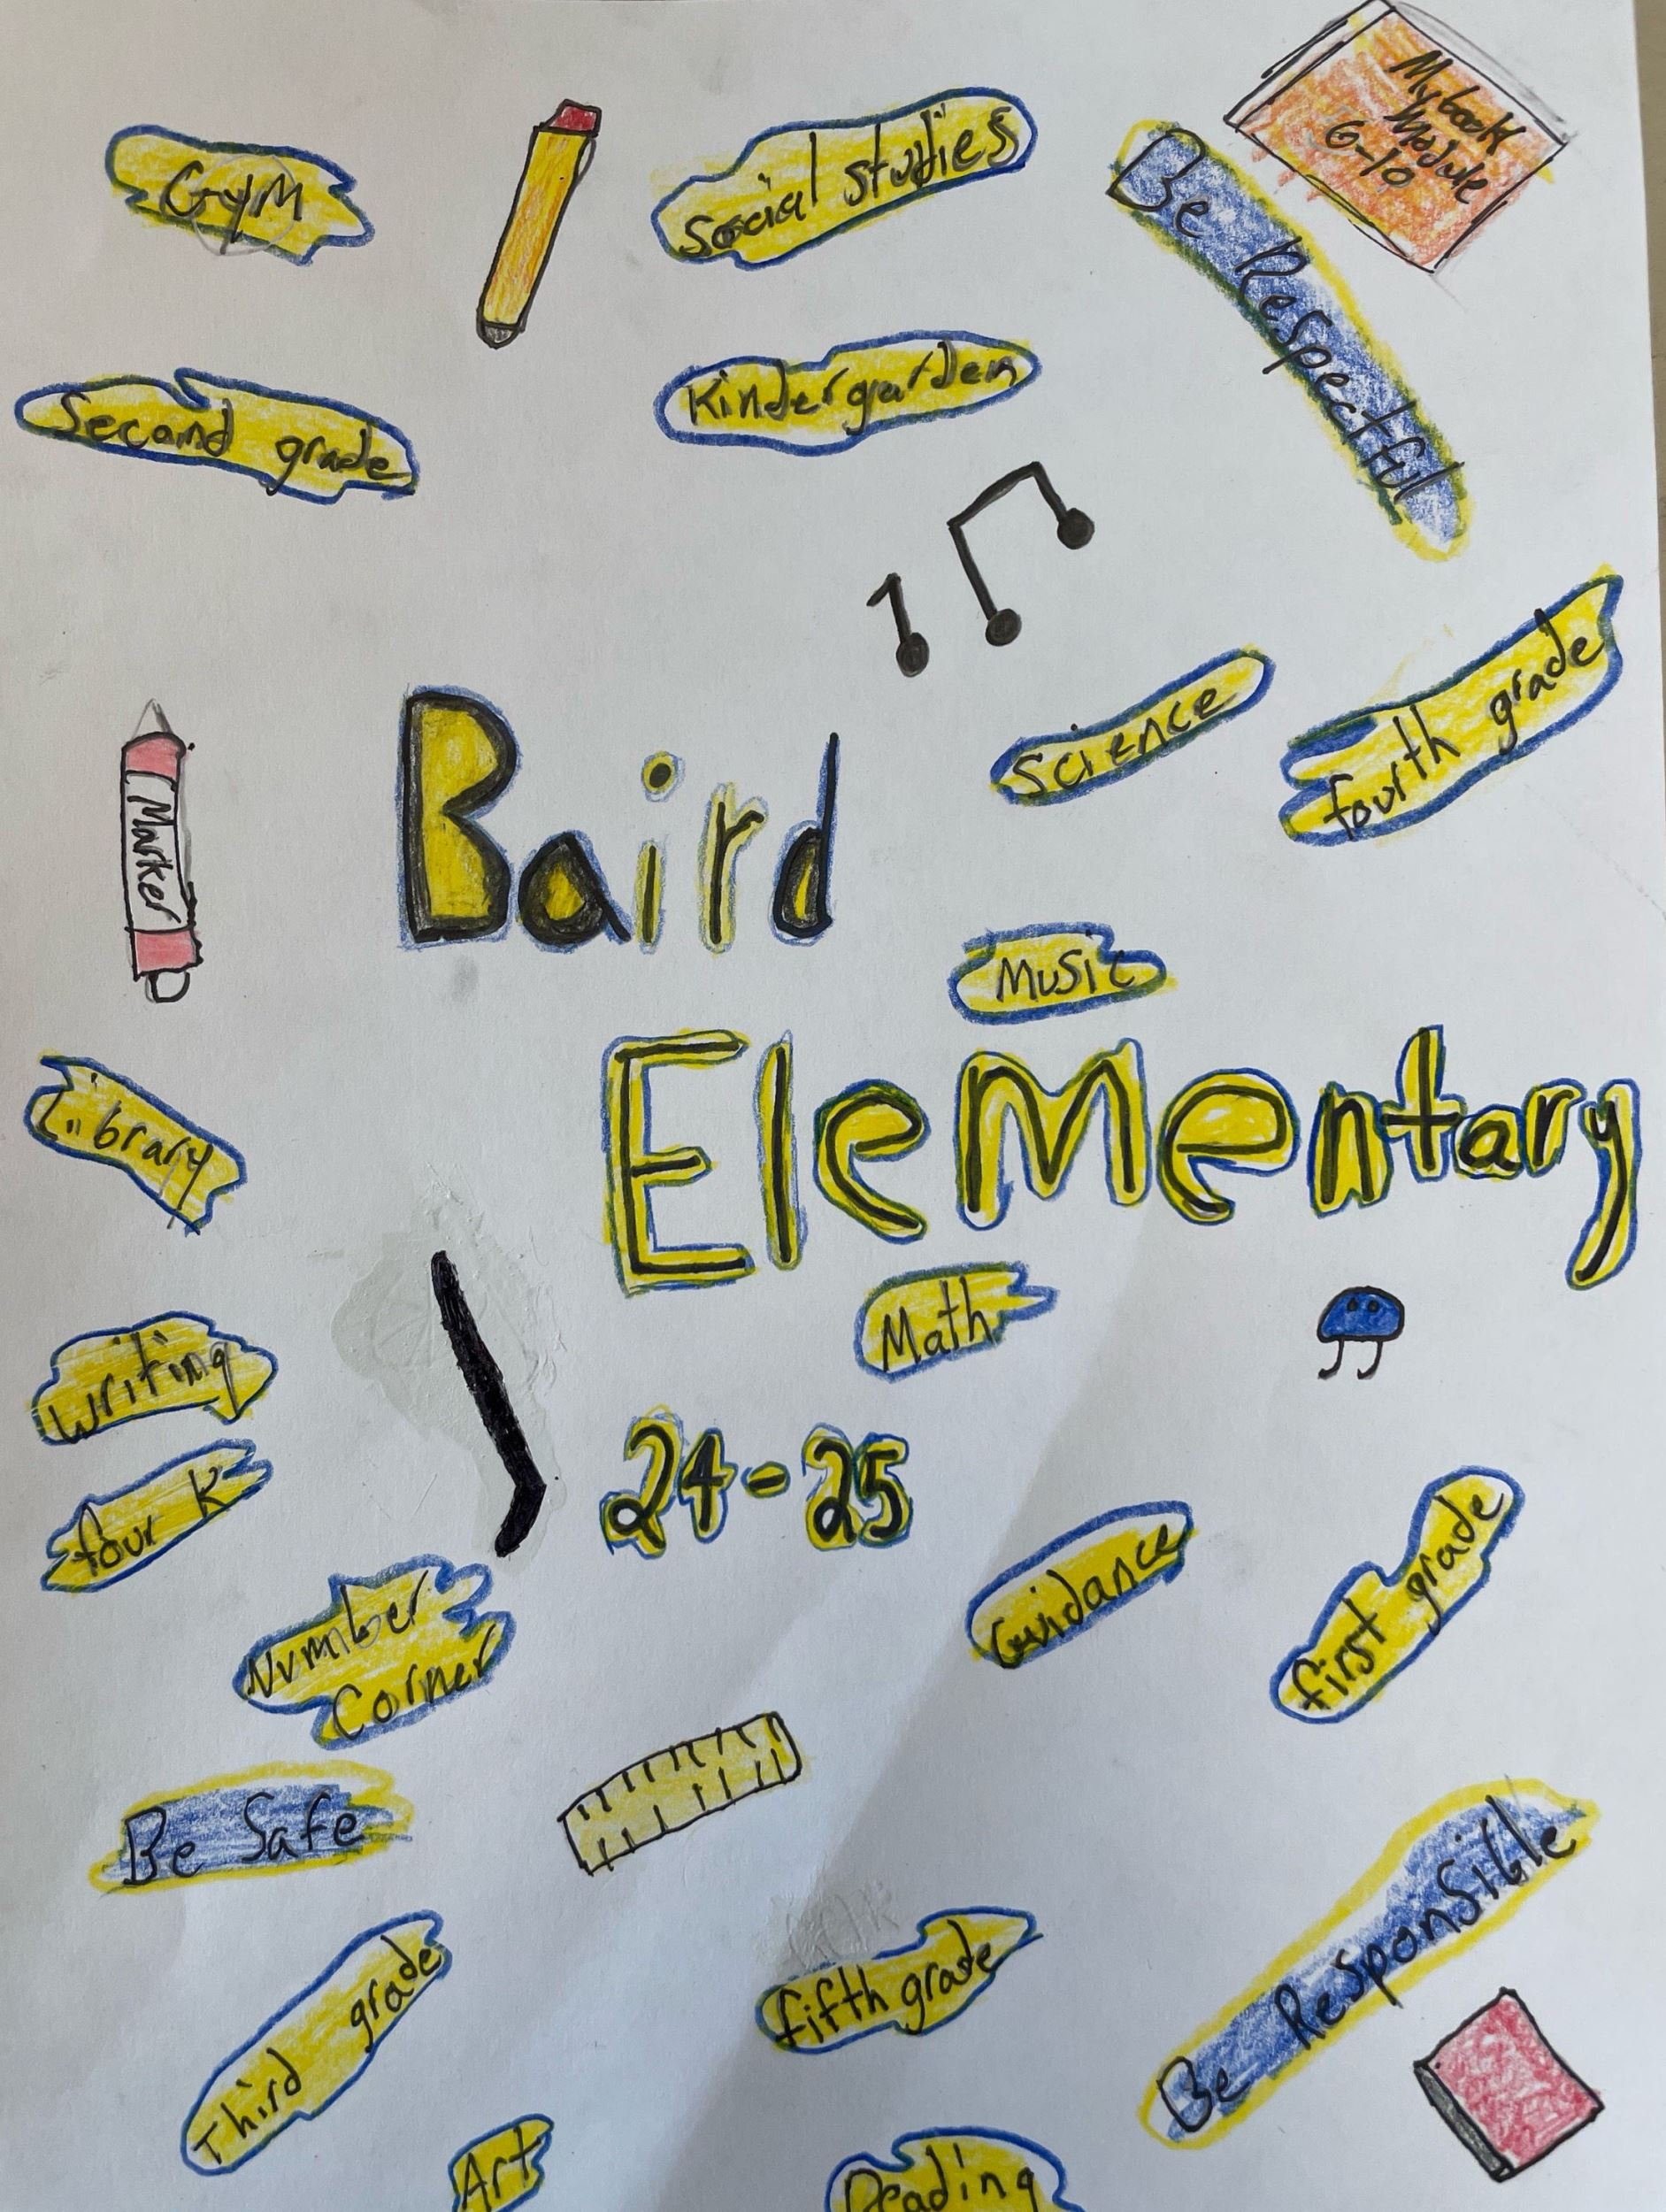 Gym
Social studies
Be Respectful
My book
Module
6-10
Second grade
Kindergarden
Science
fourth grade
Marker
Baird
Music
Elementary
Library
Math
Writing
24-25
four K
Guidance
first grade
Number
Corner
Be Safe
Be Responsible
Third grade
fifth grade
Art
Reading